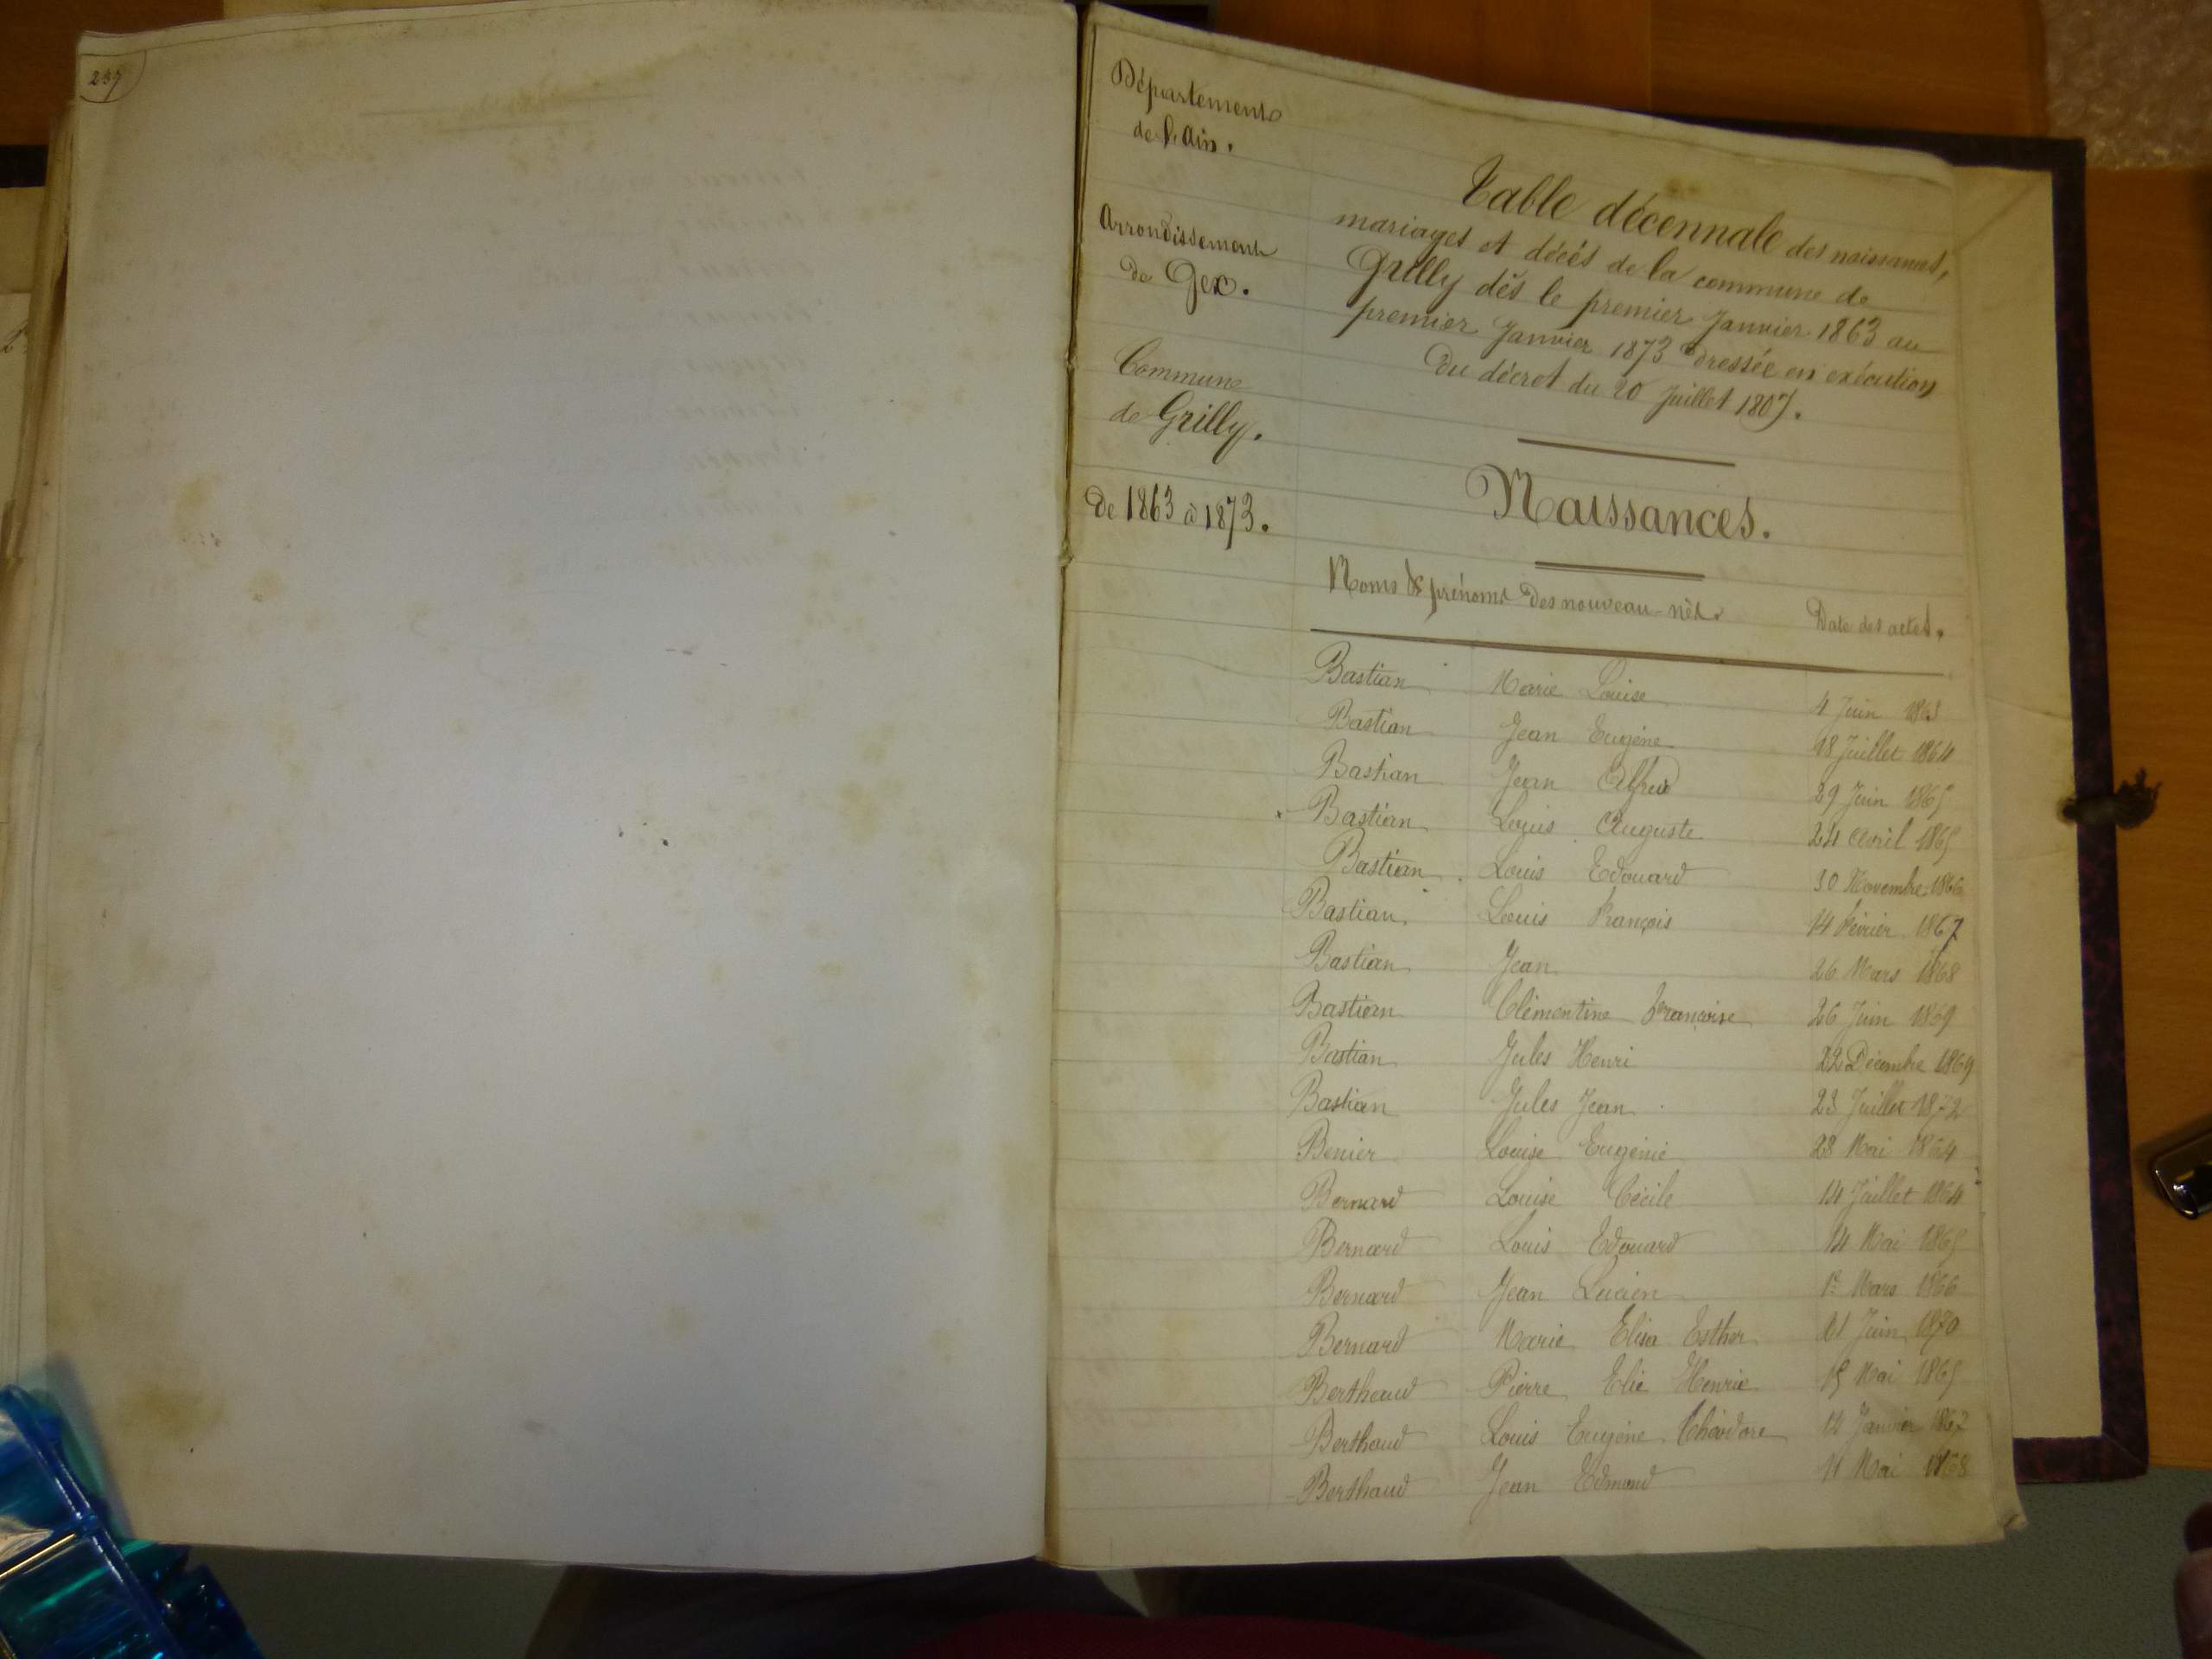 237
Département
de l'Ain.
Arrondissement
de Gex.
Commune
de Grilly.
De 1863 à 1873.
Table décennale des naissances,
mariages et décès de la commune de
Grilly dès le premier Janvier 1863 au
premier Janvier 1873 dressée en exécution
du décret du 20 Juillet 1807.
Naissances.
Noms & prénoms des nouveau-nés. Date des actes.
Bastian Marie Louise 4 Juin 1863
Bastian Jean Eugène 18 Juillet 1864
Bastian Jean Alfred 29 Juin 1865
Bastian Louis Auguste 24 Avril 1865
Bastian Louis Edouard 30 Novembre 1866
Bastian Louis François 14 Février 1867
Bastian Jean 26 Mars 1868
Bastian Clémentine Françoise 26 Juin 1869
Bastian Jules Henri 22 Décembre 1869
Bastian Jules Jean 23 Juillet 1872
Benier Louise Eugénie 28 Mai 1864
Bernard Louise Cécile 14 Juillet 1864
Bernard Louis Edouard 14 Mai 1865
Bernard Jean Lucien 1er Mars 1866
Bernard Marie Elisa Esther 21 Juin 1870
Berthaud Pierre Elie Henri 15 Mai 1865
Berthaud Louis Eugène Théodore 14 Janvier 1867
Berthaud Jean Edmond 11 Mai 1868